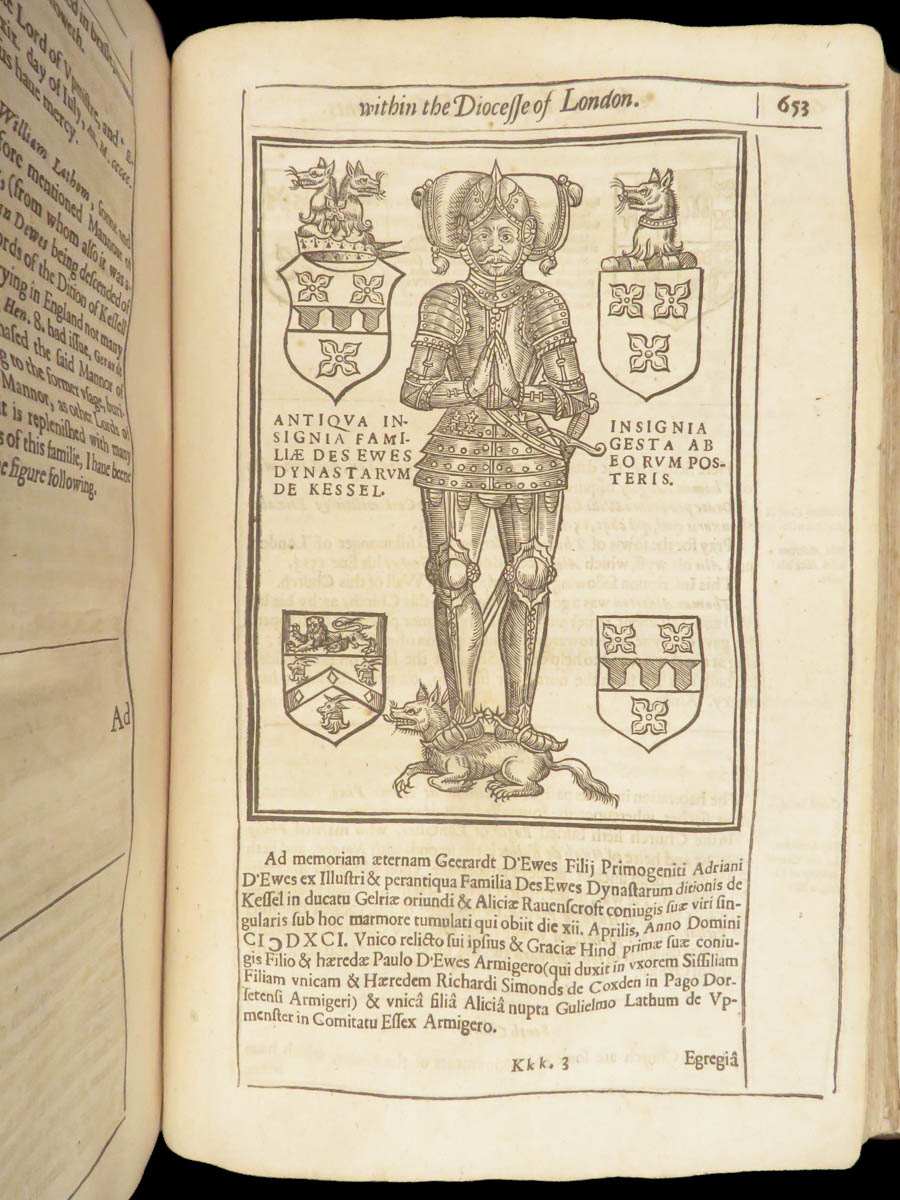 Lord of Vpmister, and
xix. day of Iuly,
us haue mercy.
William Lathom,
fore mentioned Mannour of
(from whom also it was
Dewes being descended of
ords of the Dition of Kessell
ying in England not many
Hen. 8. had issue, Gerardt
hased the said Mannor of
g to the former vsage, buri-
Mannor, as other Lords of
it is replenished with many
s of this familie, I haue beene
e figure following.
Ad
within the Diocesse of London.
653
ANTIQVA IN-
SIGNIA FAMI-
LIÆ DES EWES
DYNASTARVM
DE KESSEL.
INSIGNIA
GESTA AB
EORVM POS-
TERIS.
Ad memoriam æternam Geerardt D'Ewes Filij Primogeniti Adriani
D'Ewes ex Illustri & perantiqua Familia Des Ewes Dynastarum ditionis de
Kessel in ducatu Gelriæ oriundi & Aliciæ Rauenscroft coniugis suæ viri sin-
gularis sub hoc marmore tumulati qui obiit die xii. Aprilis, Anno Domini
CIↃDXCI. Vnico relicto sui ipsius & Graciæ Hind primæ suæ coniu-
gis Filio & hæredæ Paulo D'Ewes Armigero (qui duxit in vxorem Sissiliam
Filiam vnicam & Hæredem Richardi Simonds de Coxden in Pago Dor-
setensi Armigeri) & vnicâ filiâ Aliciâ nupta Gulielmo Lathum de Vp-
menster in Comitatu Essex Armigero.
Kkk. 3
Egregiâ